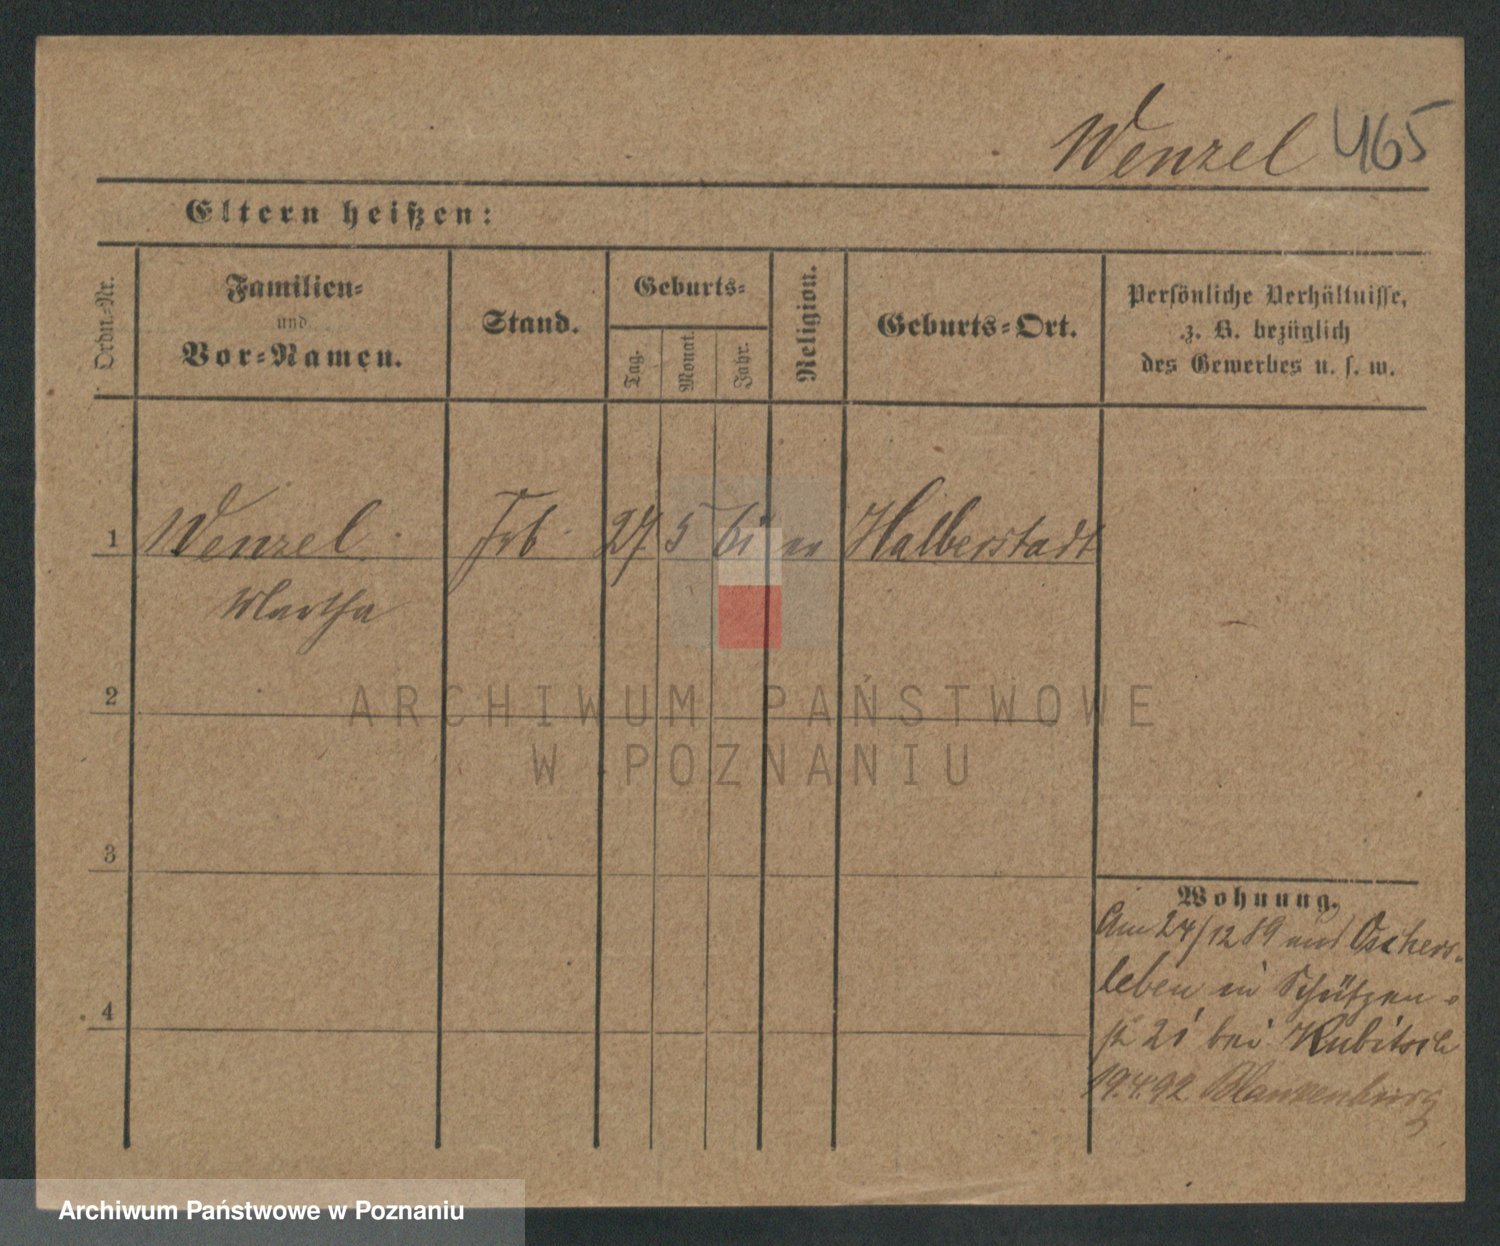 Wenzel 465
Eltern heißen:
Ordn.-Nr.
Familien-
und
Vor-Namen.
Stand.
Geburts-
Tag.
Monat.
Jahr.
Religion.
Geburts-Ort.
Persönliche Verhältnisse,
z. B. bezüglich
des Gewerbes u. s. w.
1 Wenzel 27 5 61 ev Halberstadt
Martha
2
ARCHIWUM PAŃSTWOWE
W POZNANIU
3
Wohnung.
Am 24/12 89 aus Oschers-
leben in Schützen-
4
st 21 bei Kubitsch
19.4.92 Blankenburg
Archiwum Państwowe w Poznaniu